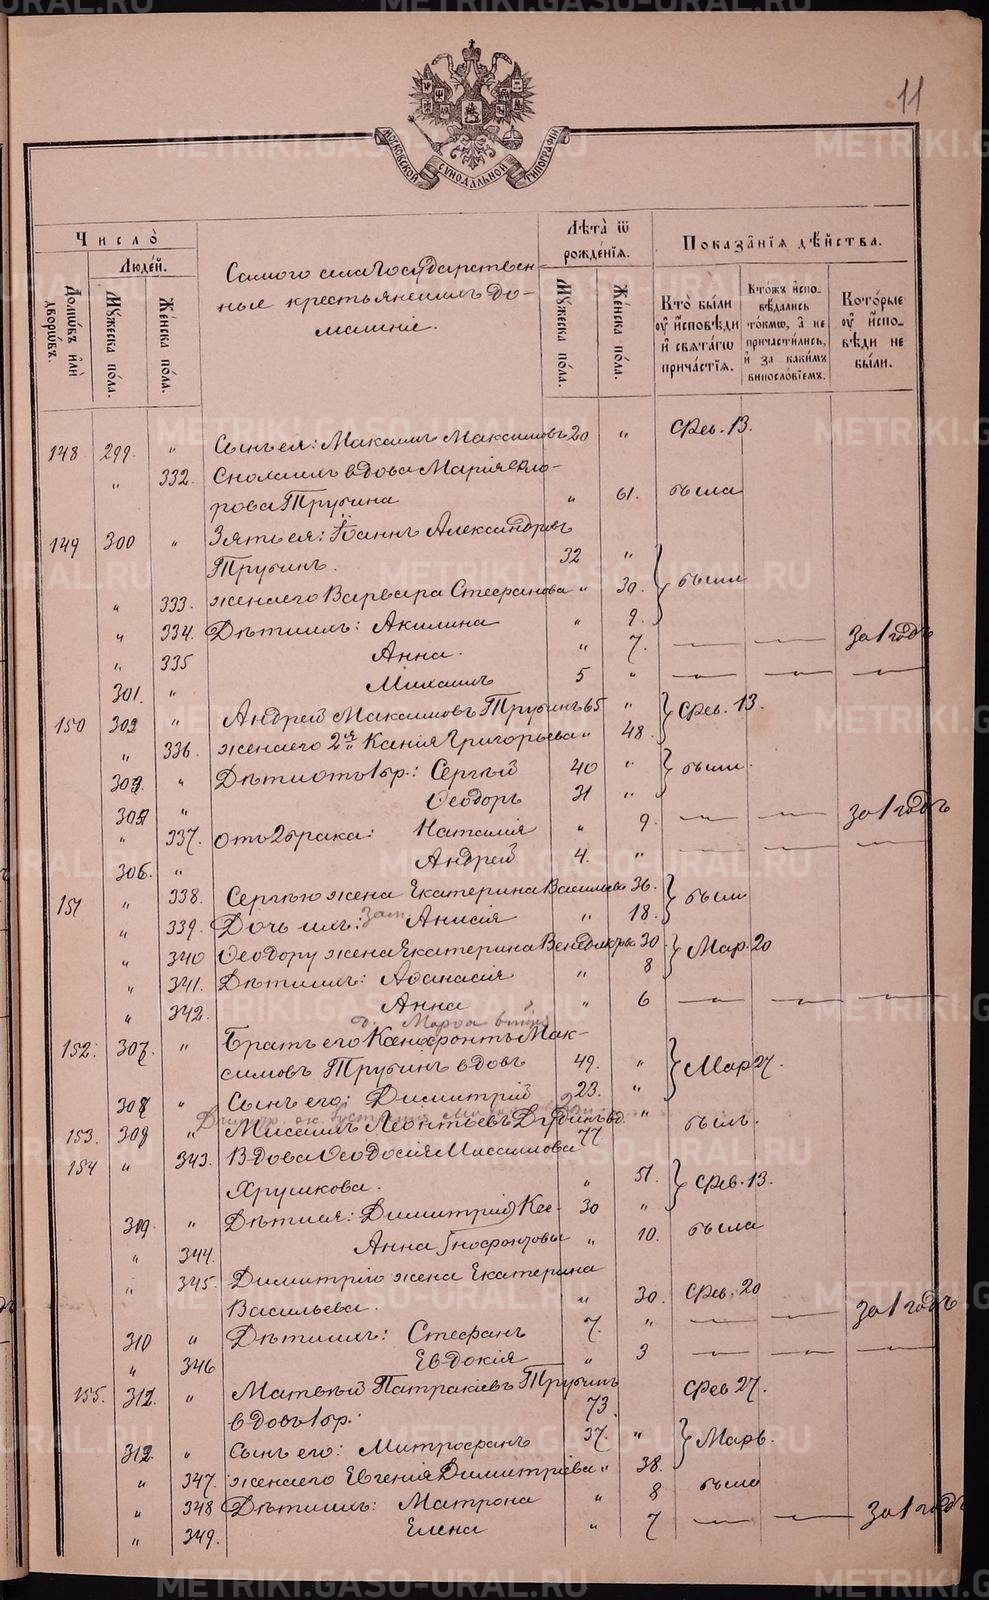 11
МОСКОВСКОЙ СѴНОДАЛЬНОЙ ТИПОГРАФІИ
Число
Людей.
Домѡвъ или дворѡвъ.
Мꙋжеска пола.
Женска пола.
Самого села Государствен-
ные крестьяне и ихъ до-
машніе.
Лѣта ѿ рожденїѧ.
Мꙋжеска пола.
Женска пола.
Показанїѧ дѣйства.
Кто были ᲂу исповѣди и свѧтагѡ причастїѧ.
Ктожъ исповѣдались токмѡ, а не причастились, и за какимъ винословїемъ.
Которые ᲂу исповѣди не были.
148 299. " Сынъ ея: Максимъ Максимовъ 20 " Фев. 13.
" 332. Сноха ихъ вдова Марія Фло-
рова Трубина " 61. была
149 300 " Зять ея: Іоаннъ Александровъ
Трубинъ. 32 "
" 333. жена его Варвара Стефанова " 30. были
" 334. Дѣти ихъ: Акилина " 9.
" 335 Анна. " 7. — — за 1 годъ
301. " Михаилъ 5 " — — —
150 302 " Андрей Максимовъ Трубинъ 65 " Фев. 13.
" 336. жена его 2я Ксенія Григорьева " 48.
303. " Дѣти отъ 1 бр.: Сергѣй 40 " были.
" Ѳеодоръ 31 "
" 337. отъ 2 брака: Наталія " 9. — — за 1 годъ
306. " Андрей 4. " — — —
151 " 338. Сергѣю жена Екатерина Васильева 36. были
" 339. Дочь ихъ: Анисія " 18.
" 340 Ѳеодору жена Екатерина 30 Мар. 20
" 341. Дѣти ихъ: Аѳанасія " 8
" 342. Анна " 6 — — —
Марѳа
152. 307. " Братъ его Ксенофонтъ Мак-
симовъ Трубинъ вдовъ 49. " Мар 27.
308 " Сынъ его: Димитрій 23. "
153. 308 " Мисаилъ Леонтьевъ 77 " былъ.
154 " 343. Вдова Ѳеодосія
Хрушкова. " 51. Фев. 13.
309. " Дѣти ея: Димитрій 30 "
" 344. Анна " 10. была
" 345. Димитрію жена Екатерина
Васильева. " 30. Фев. 20
310 " Дѣти ихъ: Стефанъ 7. " — — за 1 годъ
" 346 Евдокія " 3 — — —
155. 312. " Матвѣй Патракіевъ Трубинъ
вдовъ 1 бр. 73. Фев 27.
312. " Сынъ его: Митрофанъ 37. " Мар 6.
" 347. жена его Евгенія Димитріева " 38.
" 348 Дѣти ихъ: Матрона " 8 была
" 349. Елена " 7 — — за 1 годъ
METRIKI.GASO-URAL.RU